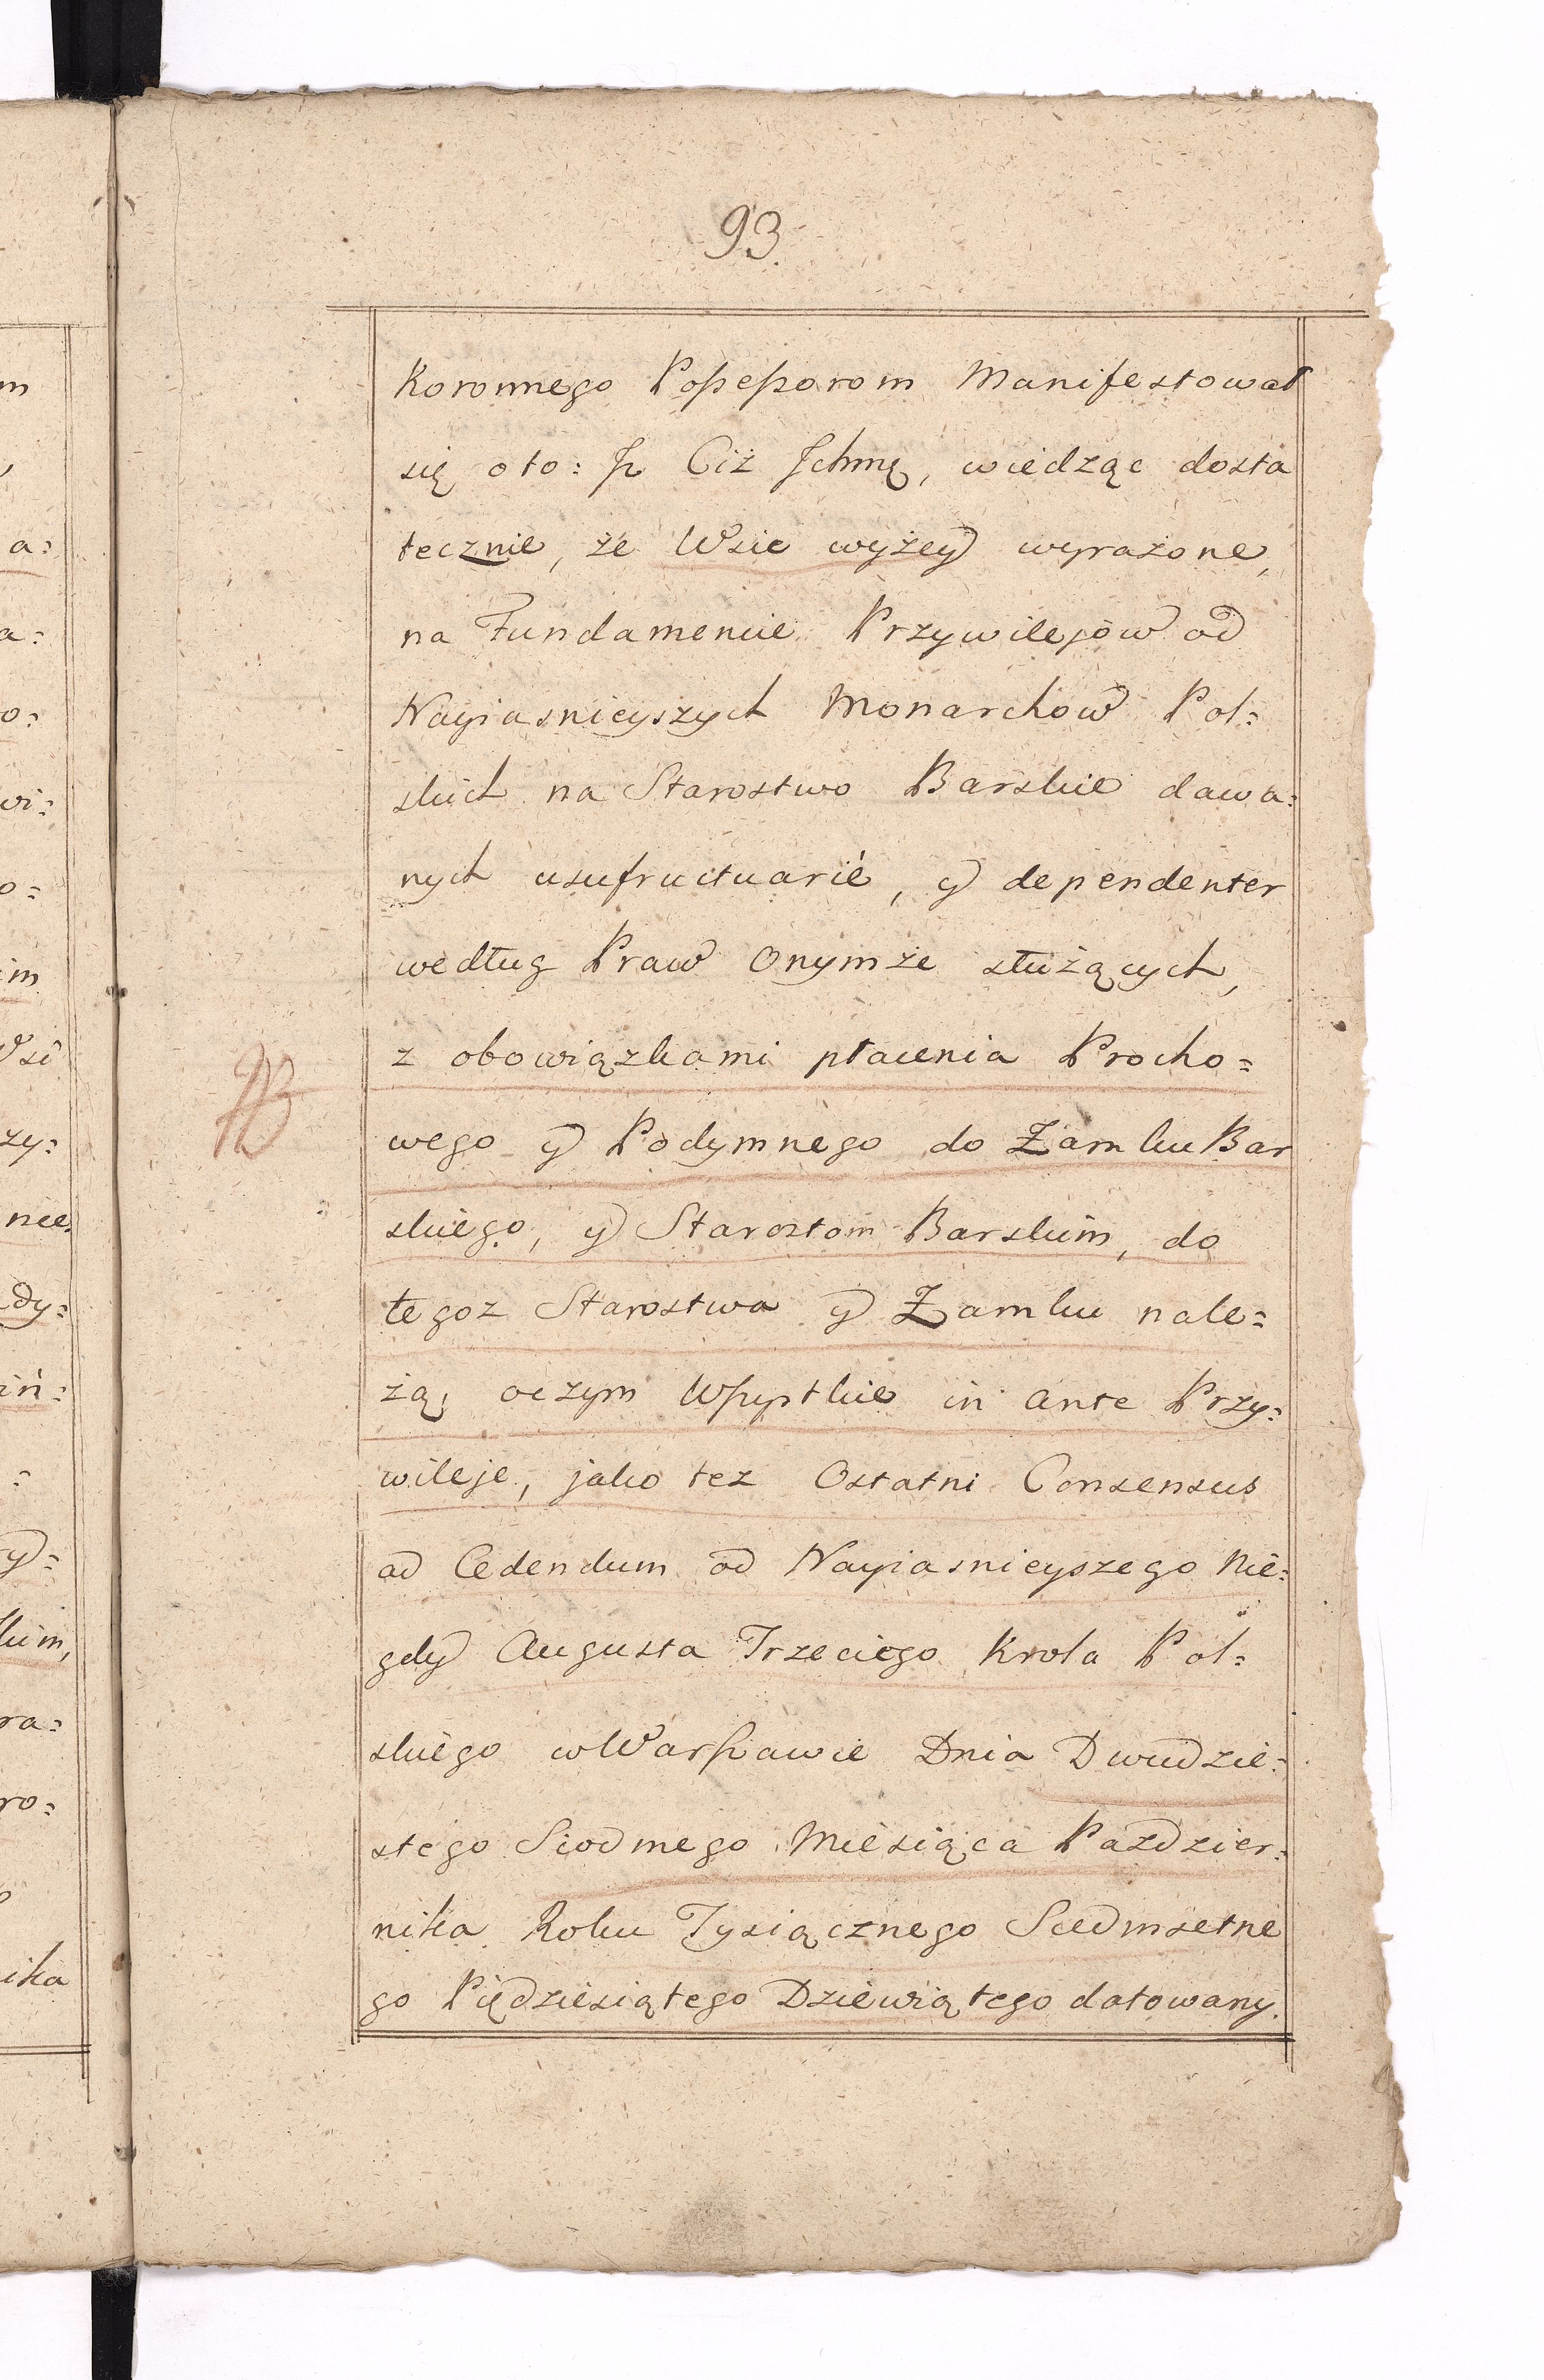 93.
Koronnego Possessorom Manifestował
się oto: że Ciż Jchmę, wiedząc dosta
tecznie, że Wsie wyżey wyrażone,
na Fundamencie Przywilejow od
Nayiasnieyszych Monarchow Pol=
skich na Starostwo Barskie dawa=
nych usufructuarié, y dependenter
według Praw Onymże służących,
z obowiązkami płacenia Procho=
wego y Podymnego do Zamku Bar
skiego, y Starostom Barskim, do
tegoz Starostwa y Zamku nale=
żą, oczym Wszystkie in ante Przy=
wileje, jako tez Ostatni Consensus
ad Cedendum od Nayiasnieyszego Nie=
gdy Augusta Trzeciego Krola Pol=
skiego w Warszawie Dnia Dwudzie=
stego Siodmego Miesiąca Pazdzier=
nika Roku Tysiącznego Siedmsetne
go Piędziesiątego Dziewiątego datowany.
NB
m
a:
a:
o:
wi:
o=
im
Wsi
zy:
nie
dy:
iń:
=
y=
kim,
ra:
ro:
ika